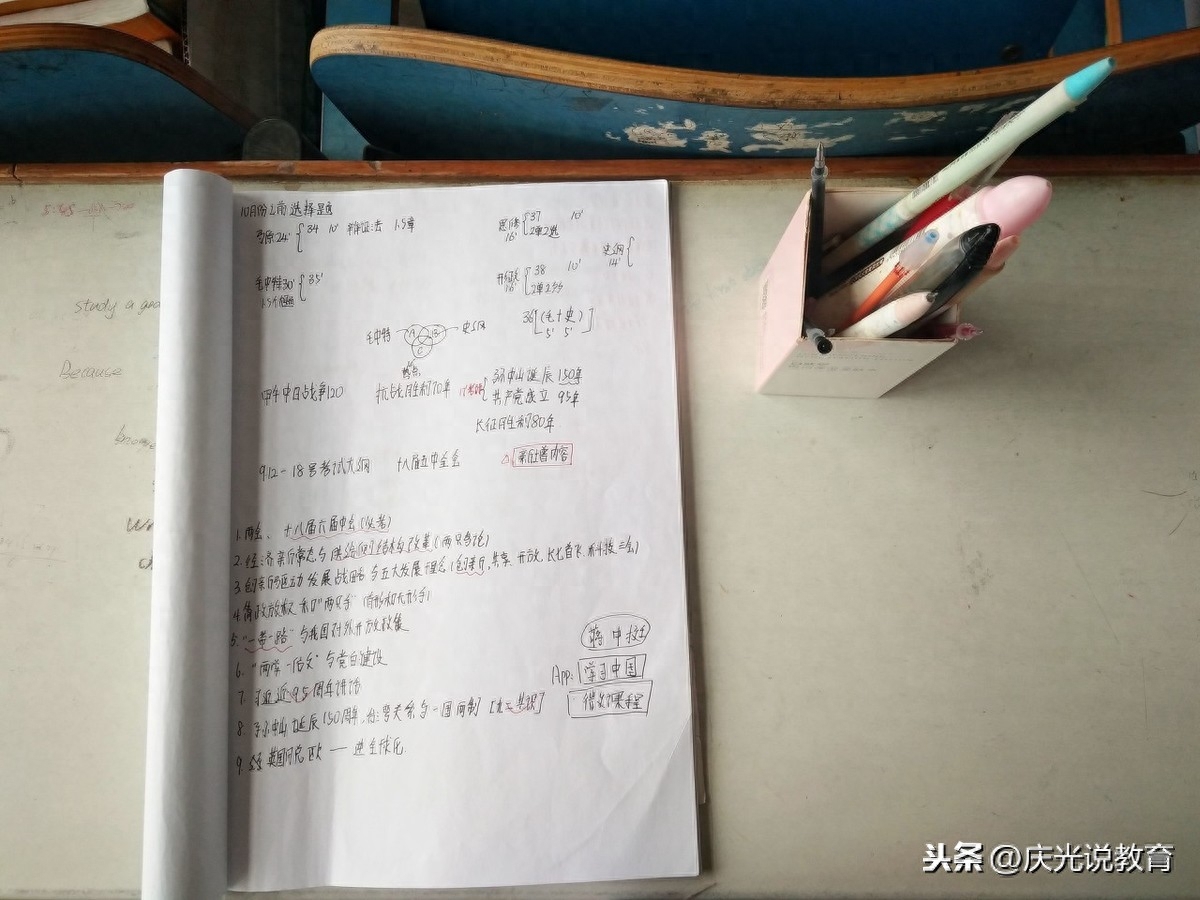 10月份之前选择题
马原24' { 34 10' 辩证法 1.5章
思修16' { 37 10' 2单2选
史纲14' {
毛中特30' { 35'
1.5个题
38 10' 2单2多
36 [(毛+史) 5' 5']
毛中特 A B 史纲
C
甲午中日战争120 抗战胜利70年 { 孙中山诞辰150年
共产党成立 95年
长征胜利80年
9.12-18号考试大纲 十八届五中全会 △新增内容
1. 两会、十八届六届中会(必考)
2. 经济新常态与供给侧结构改革(两只手论)
3. 创新驱动发展战略与五大发展理念(创新,共享,开放,
4. 简政放权和"两只手"(有形和无形手)
5. "一带一路"与我国对外开放政策
6. "两学一做"与党自建设
7. 习近平95周年讲话
8. 孙中山诞辰150周年,台湾关系与一国两制 [九二共识]
9. 英国脱欧 — 逆全球化
蒋中挺
App: 学习中国
得到课程
study a goa
Because
头条 @庆光说教育